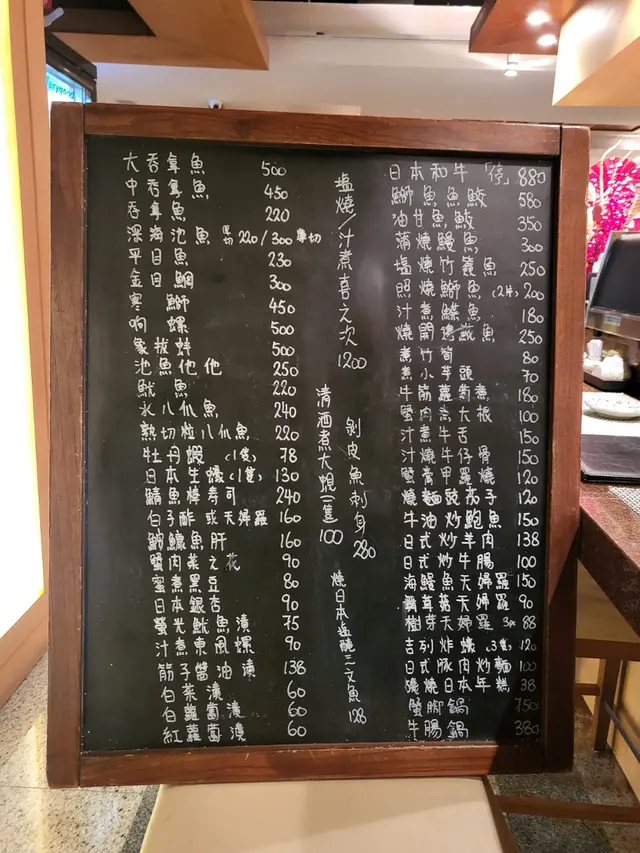 大吞拿魚 500
中吞拿魚 450
吞拿魚 220
深海池魚 厚切 220/300 薄切
平目魚 230
金目鯛 300
寒鰤 450
响螺 500
象拔蚌 500
池魚他他 250
魷魚 220
水八爪魚 240
熟切粒八爪魚 220
牡丹蝦 (1隻) 78
日本生蠔 (1隻) 130
鯖魚棒壽司 240
白子酢或天婦羅 160
鮟鱇魚肝 160
蟹肉菜之花 90
蜜煮黑豆 80
日本銀杏 90
螢光魷魚漬 75
汁煮東風螺 90
筋子醬油漬 138
白菜漬 60
白蘿蔔漬 60
紅蘿蔔漬 60
塩燒/汁煮喜之次 1200
清酒煮大蜆(隻) 100
剝皮魚刺身 280
燒日本塩醃三文魚 128
日本和牛「停」 880
鰤魚魚鮫 580
油甘魚鮫 350
蒲燒鰻魚 300
塩燒竹籤魚 250
照燒鰤魚 (2片) 200
汁煮鰈魚 180
燒開邊魚 250
煮竹筍 80
煮小芋頭 70
牛筋蘿蔔煮 180
蟹肉煮大根 100
汁煮牛舌 150
汁燒牛仔骨 150
蟹膏甲羅燒 120
燒麵豉茄子 120
牛油炒鮑魚 150
日式炒羊肉 138
日式炒牛腸 100
海鰻魚天婦羅 150
舞茸菇天婦羅 90
樹芽天婦羅 3pc 88
吉列炸蠔 (3隻) 120
日式豚肉炒麵 100
磯燒日本年糕 38
蟹腳鍋 750
牛腸鍋 380